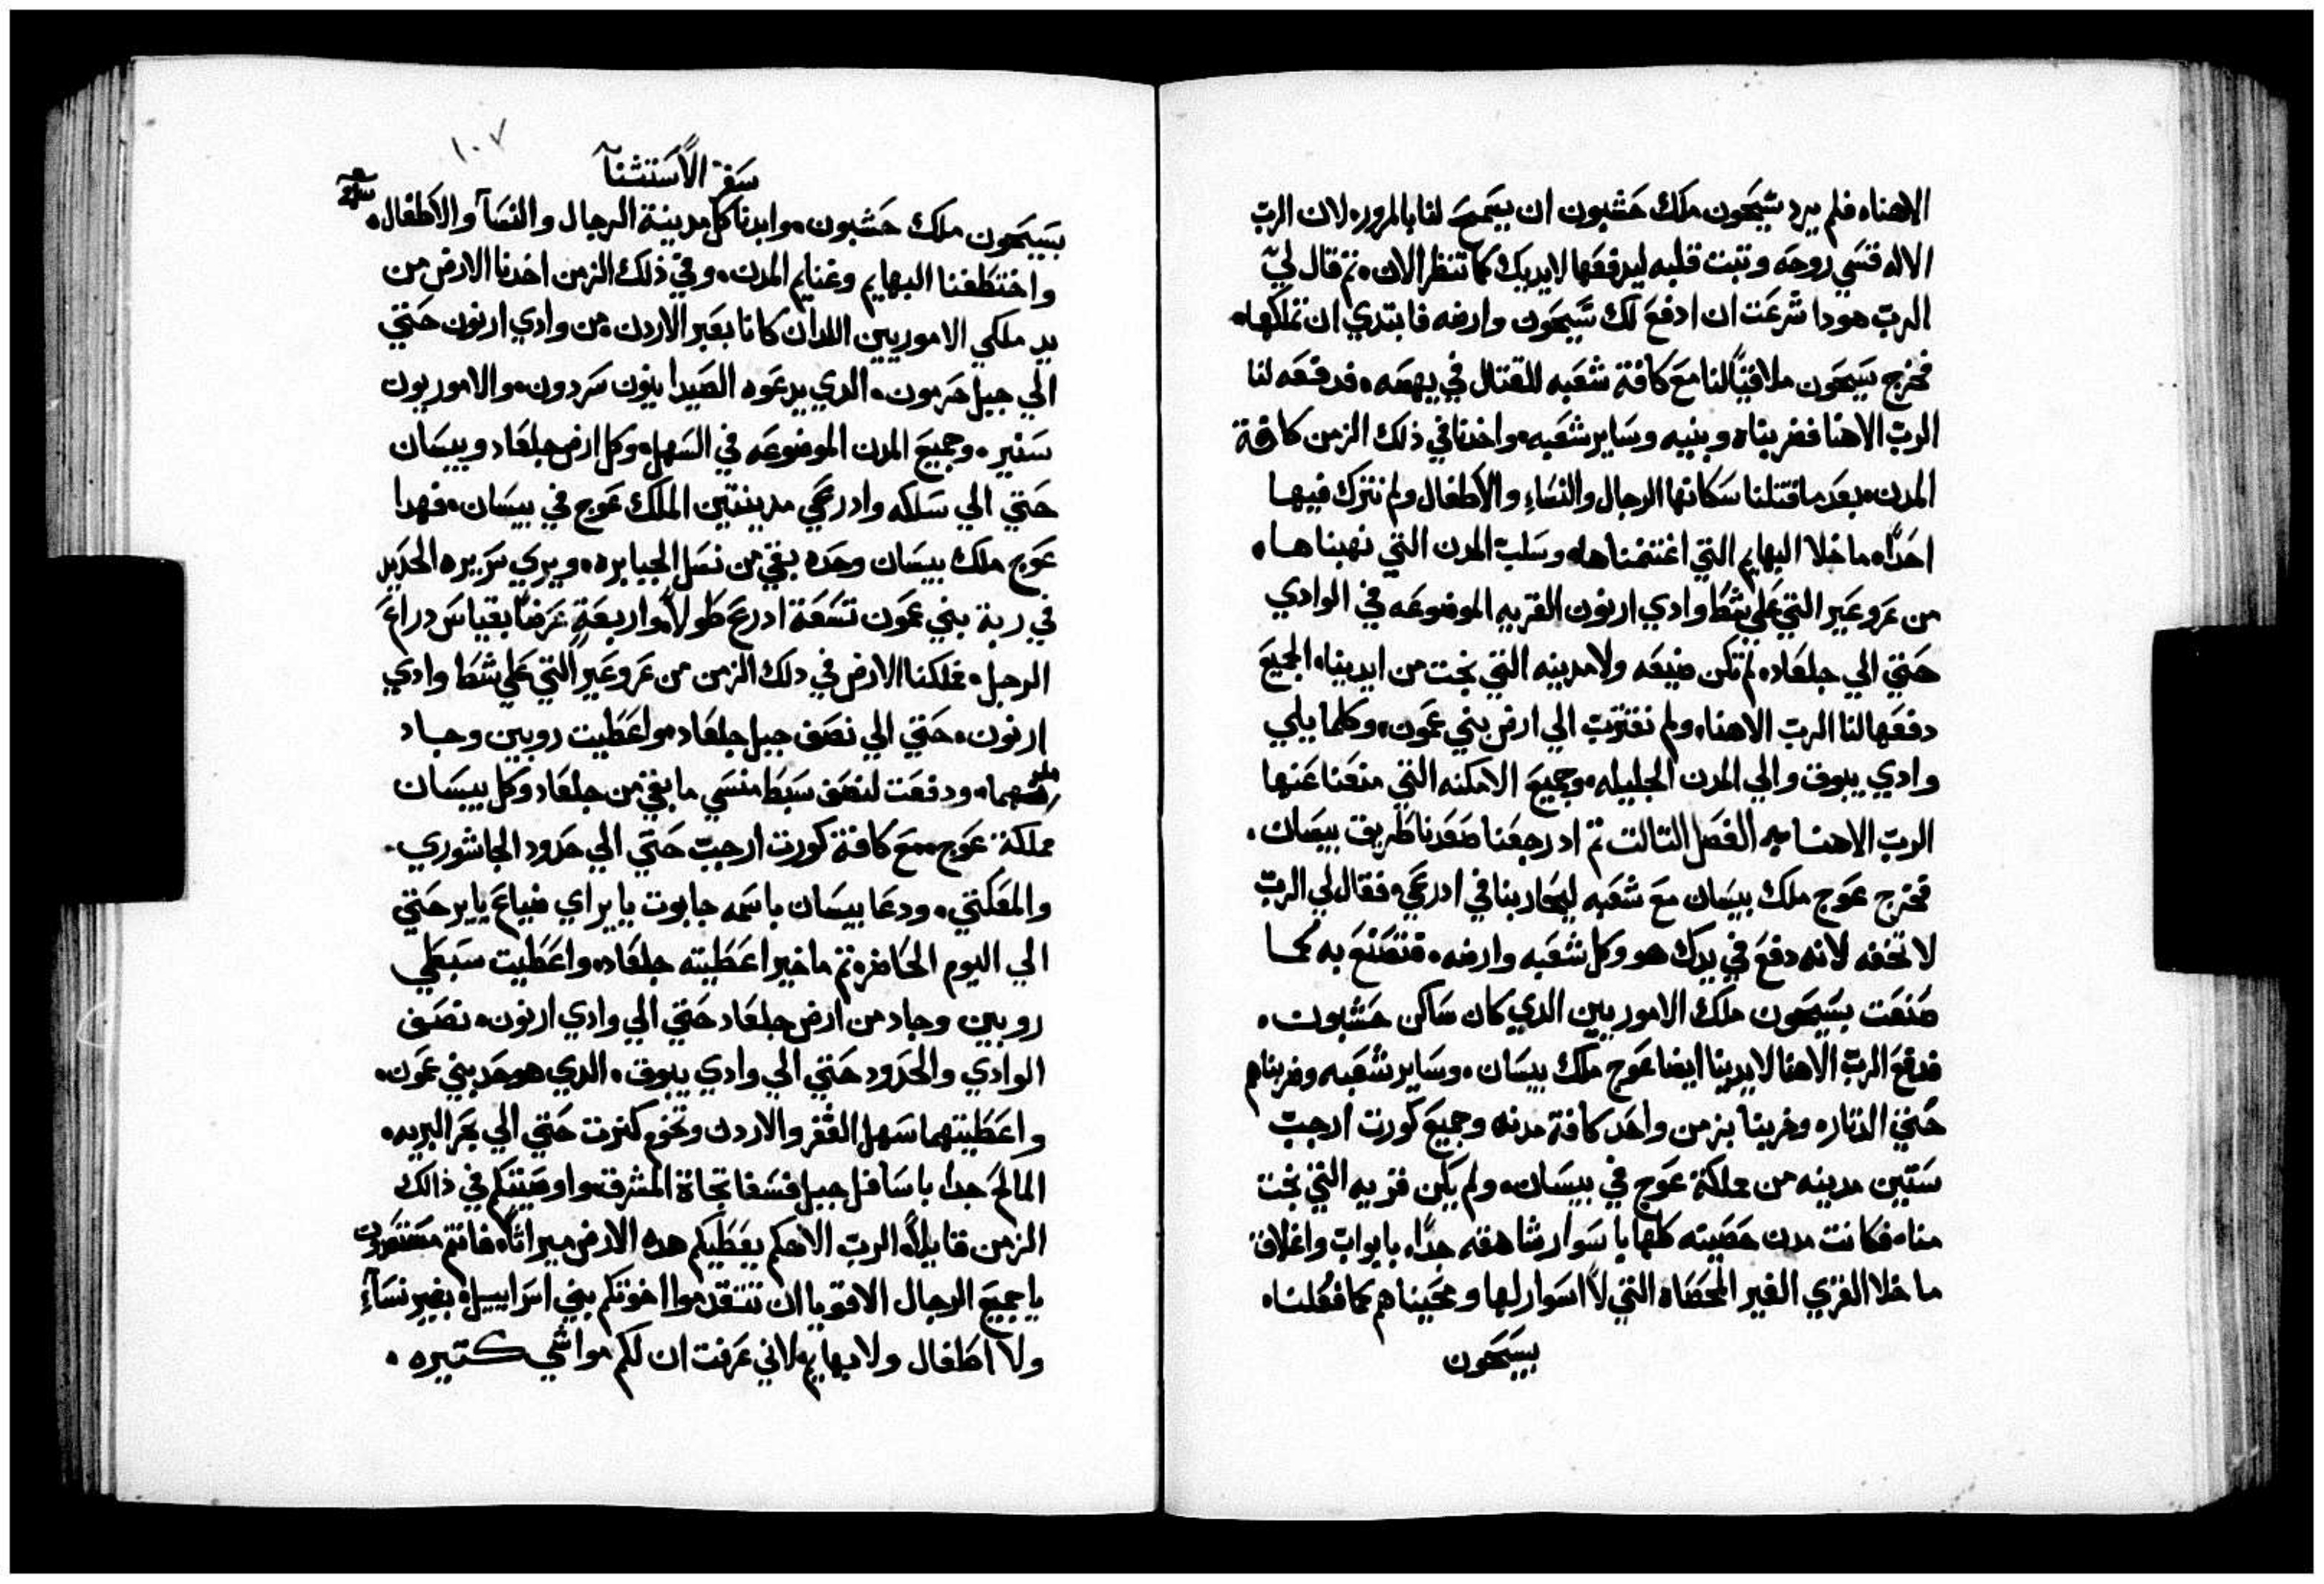 الاهنا، فلم يرد سيحون ملك حشبون ان يسمح لنا بالمرور، لان الرب
الاله قسي روحه وتبت قلبه ليدفعها لايديك كما تنظر الان، تم قال لي
الرب هودا شرعت ان ادفع لك سيحون وارضه فابتدي ان تملكها،
فخرج سيحون ملاقيًا لنا مع كافة شعبه للقتال في يهصه، فدفعه لنا
الرب الاهنا فضربناه وبنيه وساير شعبه، واخدنا في ذلك الزمن كافة
المدن، بعد ما قتلنا سكانها الرجال والنساء والاطفال ولم نترك فيها
احدًا، ما خلا البهايم التي اغتنمناها، وسلب المدن التي نهبناها،
من عروعير التي علي شط وادي ارنون القريه الموضوعه في الوادي
حتي الي جلعاد، لم تكن ضيعه ولا مدينه التي نجت من ايدينا، الجميع
دفعها لنا الرب الاهنا، ولم نقترب الي ارض بني عمون، وكلما يلي
وادي يبوق والي المدن الجليله، وجميع الامكنه التي منعنا عنها
الرب الاهنا الفصل التالت تم اد رجعنا صعدنا طريق بيسان،
فخرج عوج ملك بيسان مع شعبه ليحاربنا في ادرعي، فقال لي الرب
لا تخفه لانه دفع في يدك هو وكل شعبه وارضه، فتصنع به كما
صنعت بسيحون ملك الاموريين الدي كان ساكن حشبون،
فدفع الرب الاهنا لايدينا ايضا عوج ملك بيسان، وساير شعبه وضربناهم
حتي الدتار، وخربنا بزمن واحد كافة مدنه وجميع كورت ارجب
ستين مدينه من مملكة عوج في بيسان، ولم يكن قريه التي نجت
منا، فكانت مدن حصينه كلها باسوار شاهقه جدًا، بابواب واغلاق
ما خلا القري الغير المحصاه التي لا اسوار لها ومحيناهم كما فعلنا،
بسيحون
١٠٧
سفر الاستثنآ
بسيحون ملك حشبون، وابدنا كل مدينة الرجال والنسآ والاطفال،
واختطفنا البهايم وغنايم المدن، وفي ذلك الزمن اخدنا الارض من
يد ملكي الاموريين اللدان كانا بعبر الاردن من وادي ارنون حتي
الي جبل حرمون، الدي يدعوه الصيدانيون سردون، والاموريون
سنير، وجميع المدن الموضوعه في السهل، وكل ارض جلعاد وبيسان
حتي الي سلكه وادرعي مدينتين الملك عوج في بيسان، فهدا
عوج ملك بيسان وحده بقي من نسل الجبابره، ويري سريره الحديد
في ربة بني عمون تسعة ادرع طولاً واربعة عرضًا بقياس دراع
الرجل، فملكنا الارض في دلك الزمن من عروعير التي علي شط وادي
ارنون، حتي الي نصف جبل جلعاد، واعطيت روبين وجاد
ودفعت لنصف سبط منسي ما بقي من جلعاد وكل بيسان
مملكة عوج، مع كافة كورت ارجب حتي الي حدود الجاشوري،
والمعكتي، ودعا بيسان باسمه جابوت يابير اي ضياع يابير حتي
الي اليوم الحاضر، تم ماخير اعطيته جلعاد، واعطيت سبطي
روبين وجاد من ارض جلعاد حتي الي وادي ارنون، نصف
الوادي والحدود حتي الي وادي يبوق، الدي هو حد بني عمون،
واعطيتهما سهل القفر والاردن وتخوم كنرت حتي الي بحر البريه،
المالح جدا، باسافل جبل فسغا تجاة المشرق، واوصيتكم في ذالك
الزمن قايلاً، الرب الاهكم يعطيكم هده الارض ميراثًا، فانتم
يا جميع الرجال الاقويا ان تتقدموا اخوتكم بني اسراييل، بغير نساءِ
ولا اطفال ولا بهايم، لاني عرفت ان لكم مواشي كتيره،